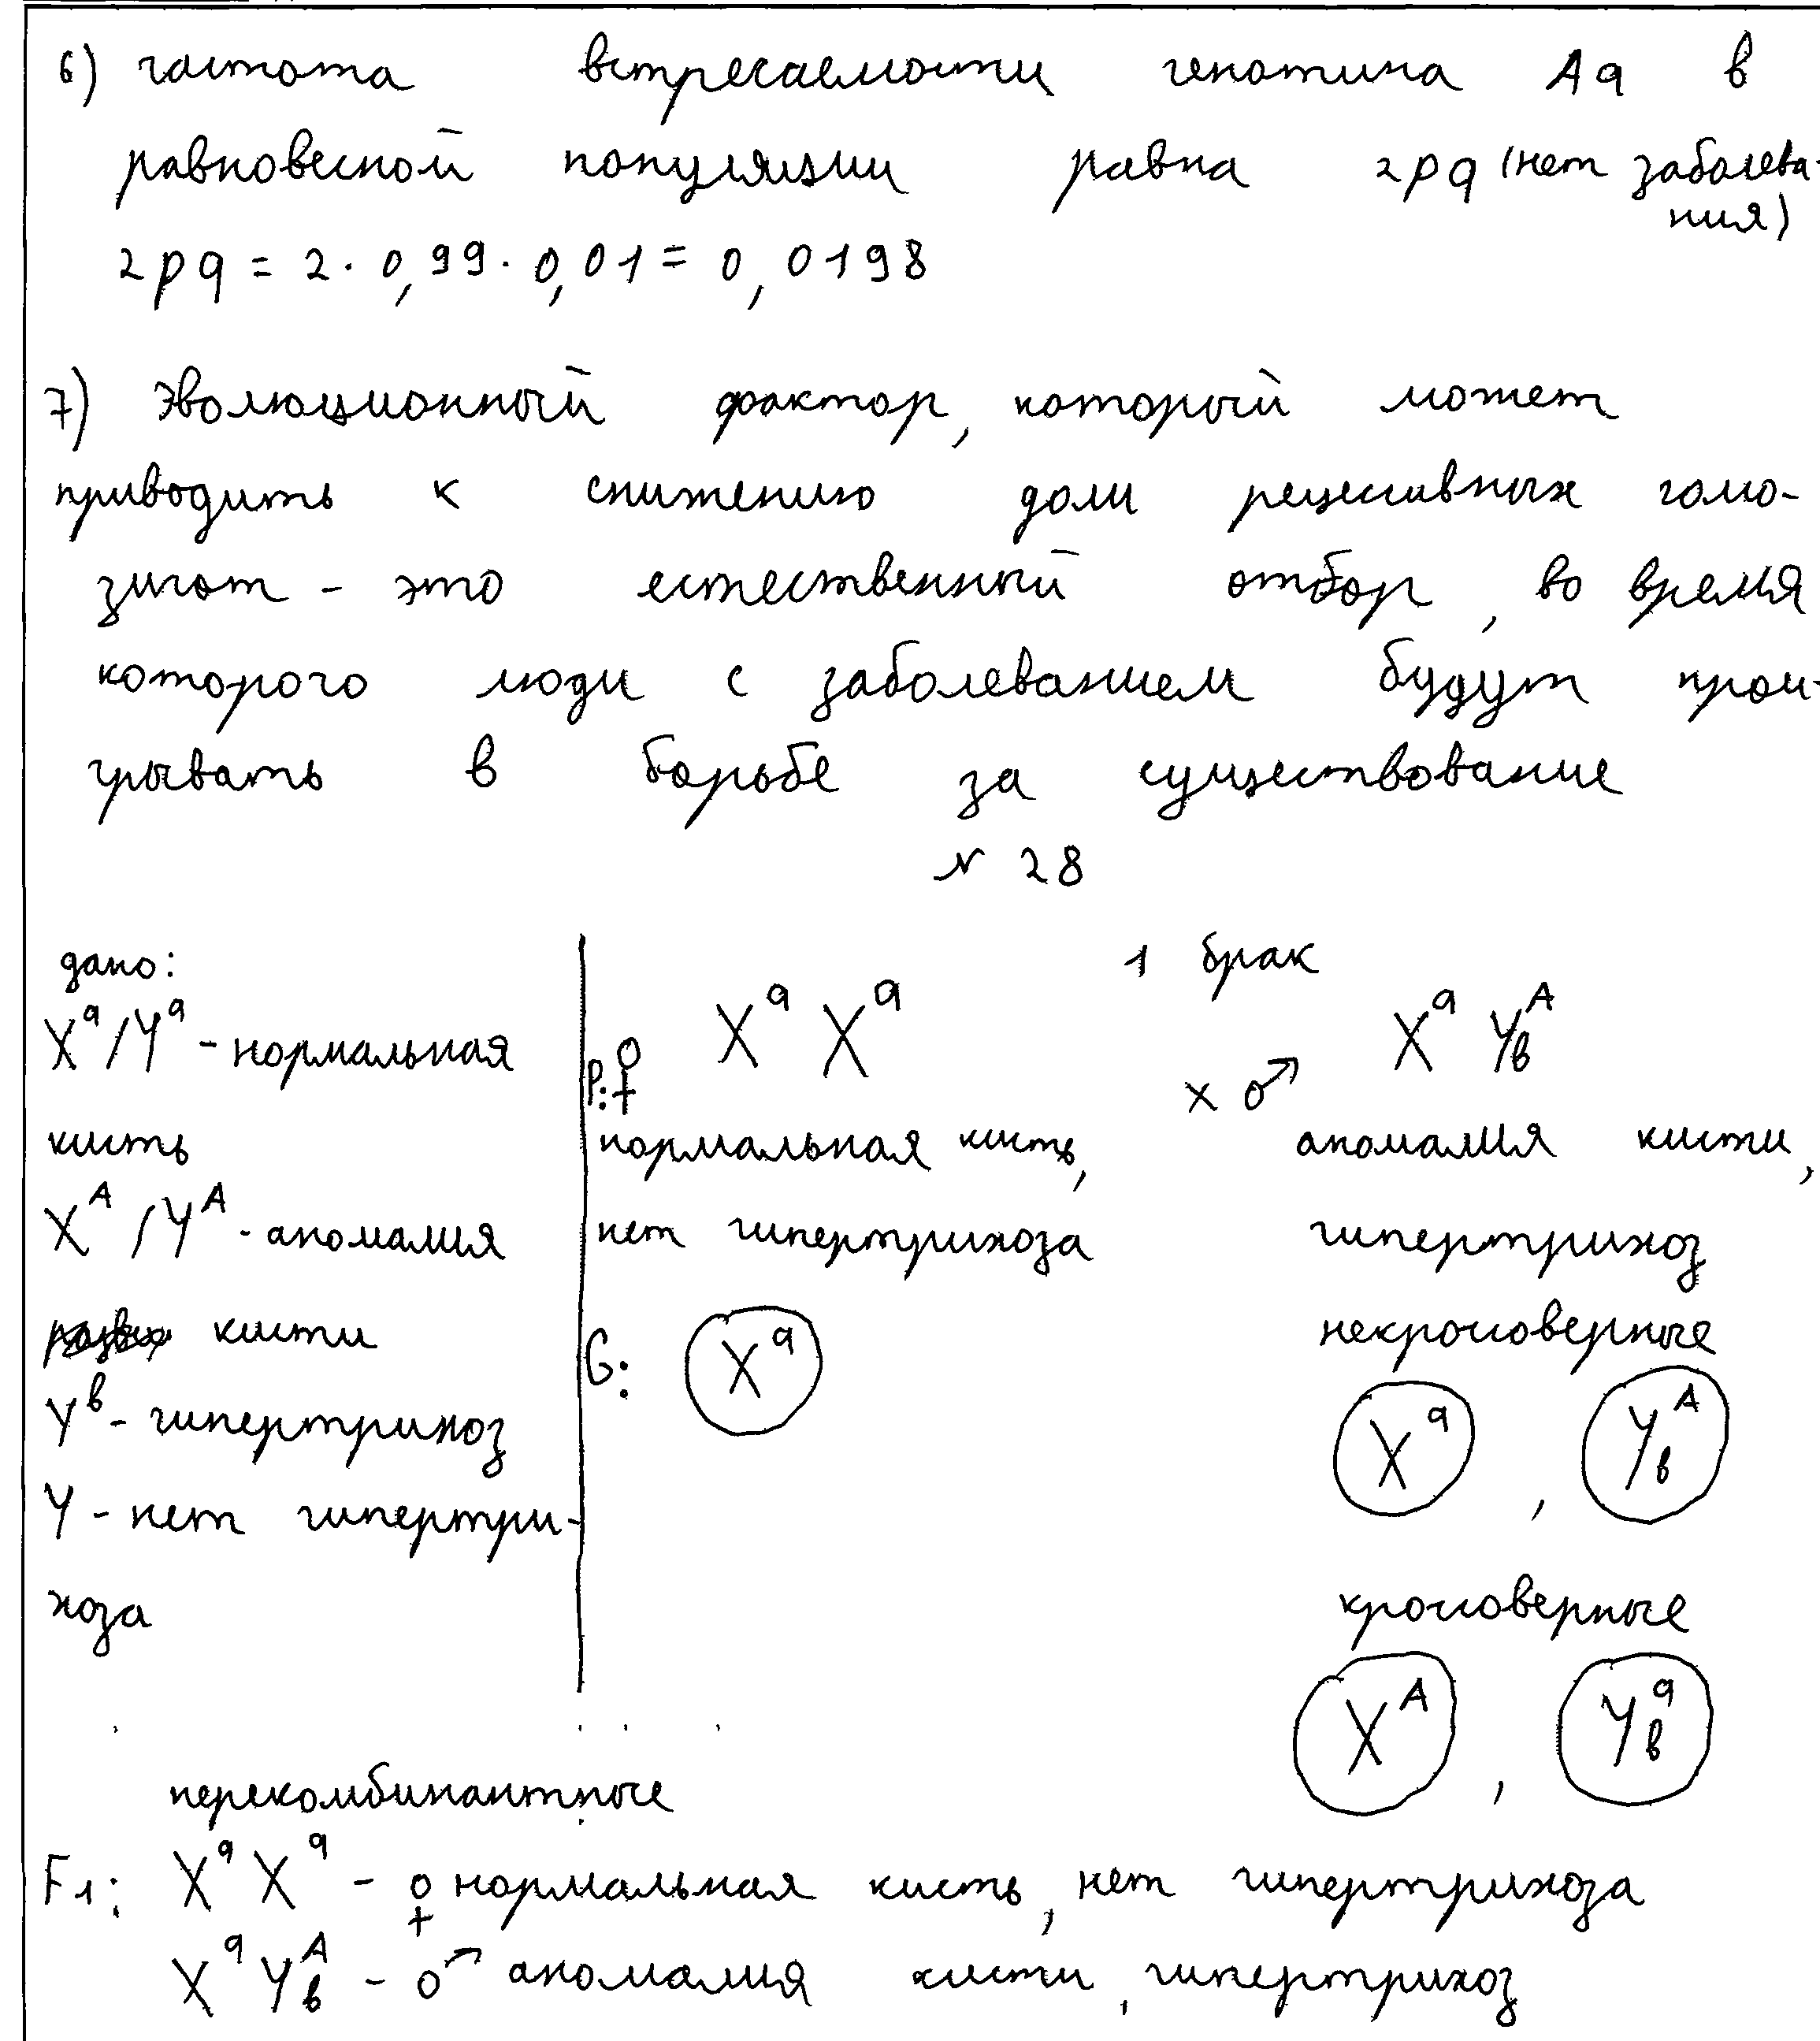 6) частота встречаемости генотипа Aa в
равновесной популяции равна 2pq (нет заболева-
ния)
2pq = 2 · 0,99 · 0,01 = 0,0198
7) Эволюционный фактор, который может
приводить к снижению доли рецессивных гомо-
зигот - это естественный отбор, во время
которого люди с заболеванием будут прои-
грывать в борьбе за существование
№ 28
дано:
1 брак
X^a/Y^a - нормальная
кисть
X^A/Y^A - аномалия
кисти
Y^в - гипертрихоз
Y - нет гипертри-
хоза
P: ♀ X^a X^a x ♂ X^a Y_в^A
нормальная кисть, аномалия кисти,
нет гипертрихоза гипертрихоз
некроссоверные
G: X^a X^a , Y_в^A
кроссоверные
X^A , Y_в^a
перекомбинантные
F1: X^a X^a - ♀ нормальная кисть, нет гипертрихоза
X^a Y_в^A - ♂ аномалия кисти, гипертрихоз